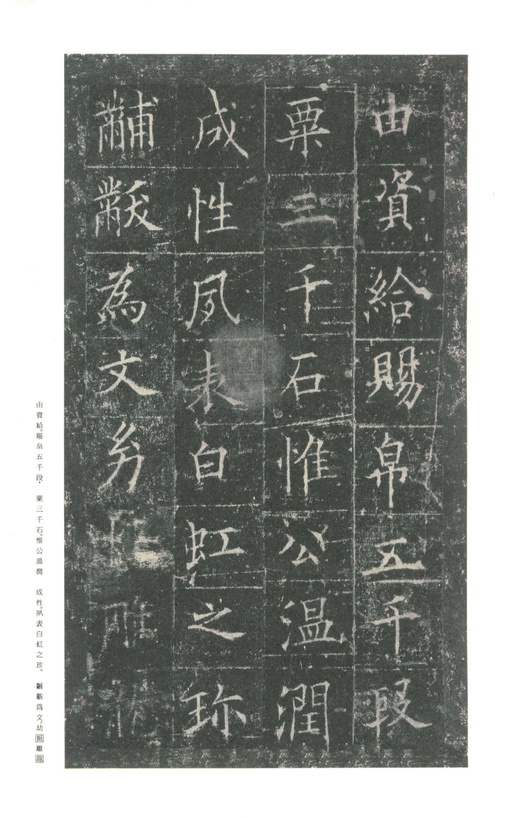 由資給賜帛五千段
粟三千石惟公温潤
成性夙表白虹之珎
黼黻為文幼
由資給。賜帛五千段。 粟三千石。惟公温潤 成性。夙表白虹之珍。 黼黻爲文。幼 雕